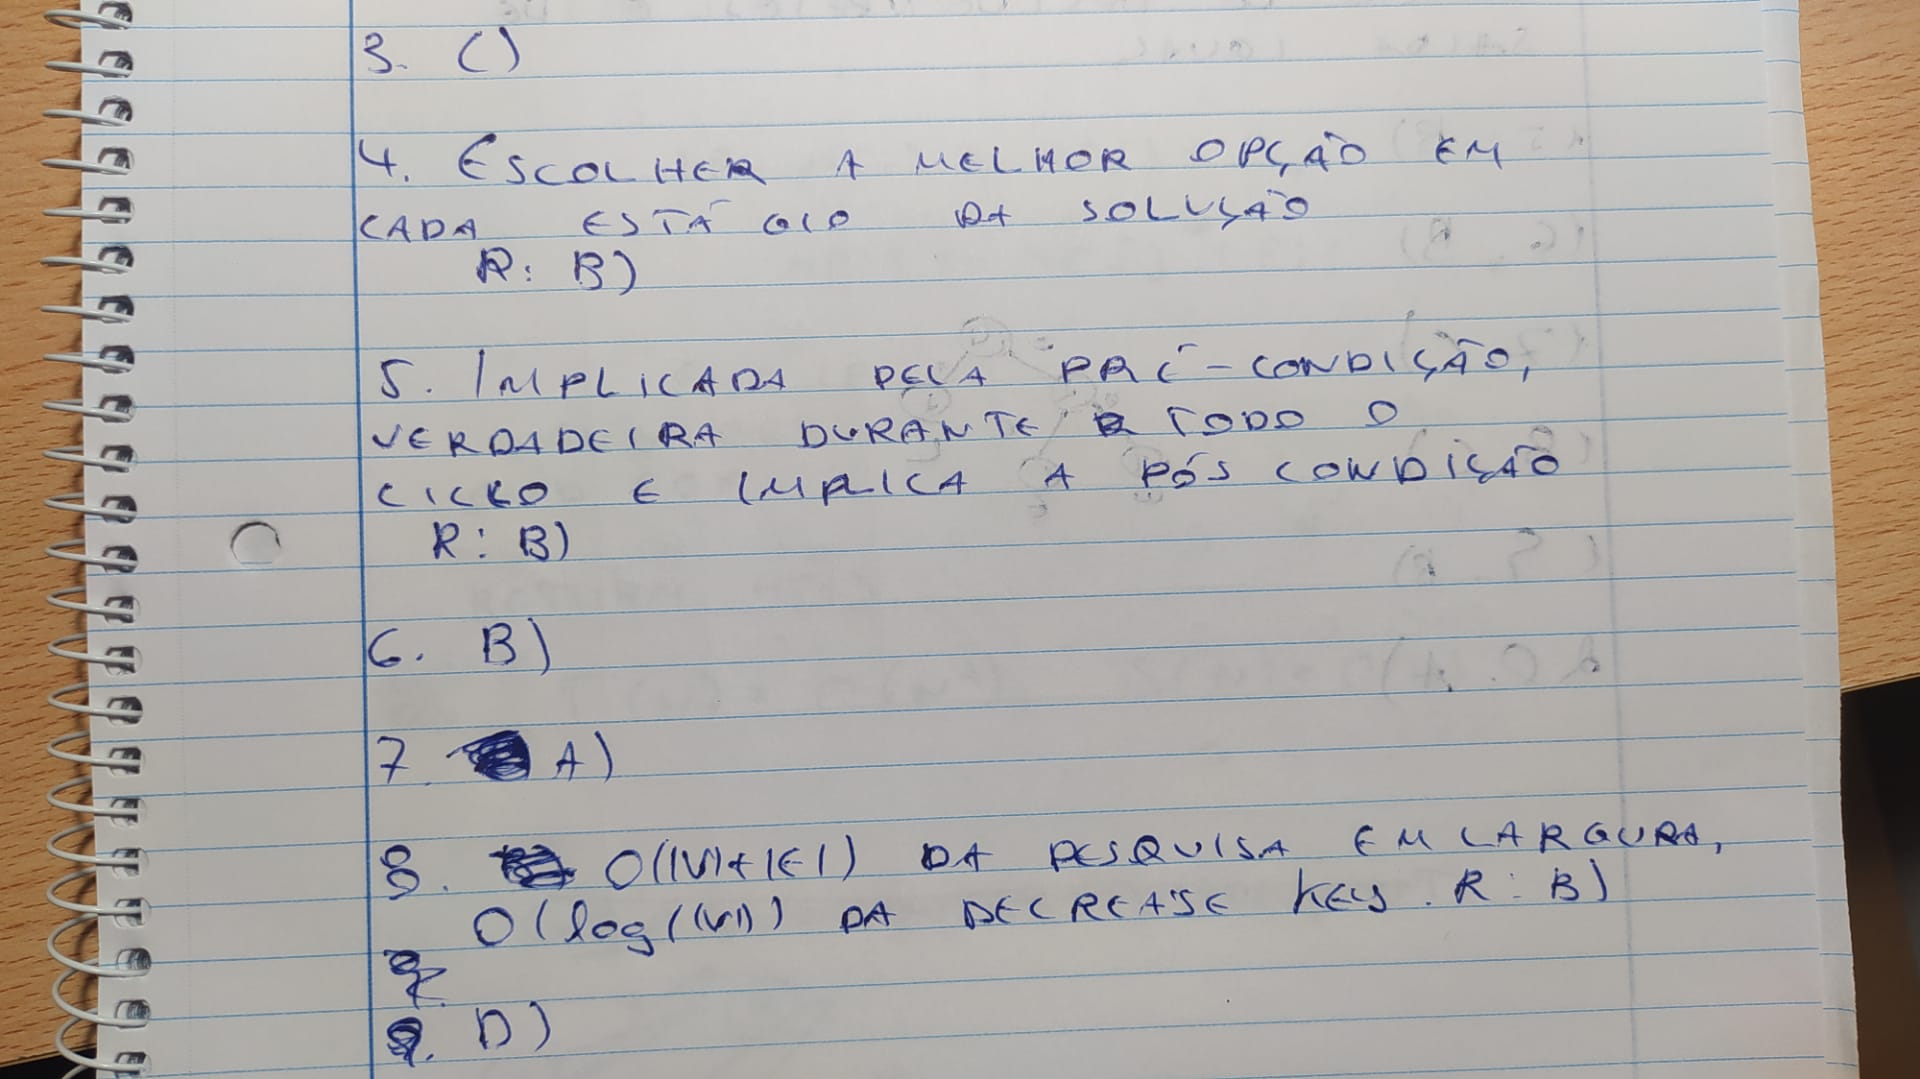 3. C)
4. ESCOLHER A MELHOR OPÇÃO EM
CADA ESTÁGIO DA SOLUÇÃO
R: B)
5. IMPLICADA PELA PRÉ-CONDIÇÃO,
VERDADEIRA DURANTE TODO O
CICLO E IMPLICA A PÓS CONDIÇÃO
R: B)
6. B)
7. A)
8. O(|V|+|E|) DA PESQUISA EM LARGURA,
O(log(|V|)) DA DECREASE KEY. R: B)
9. D)